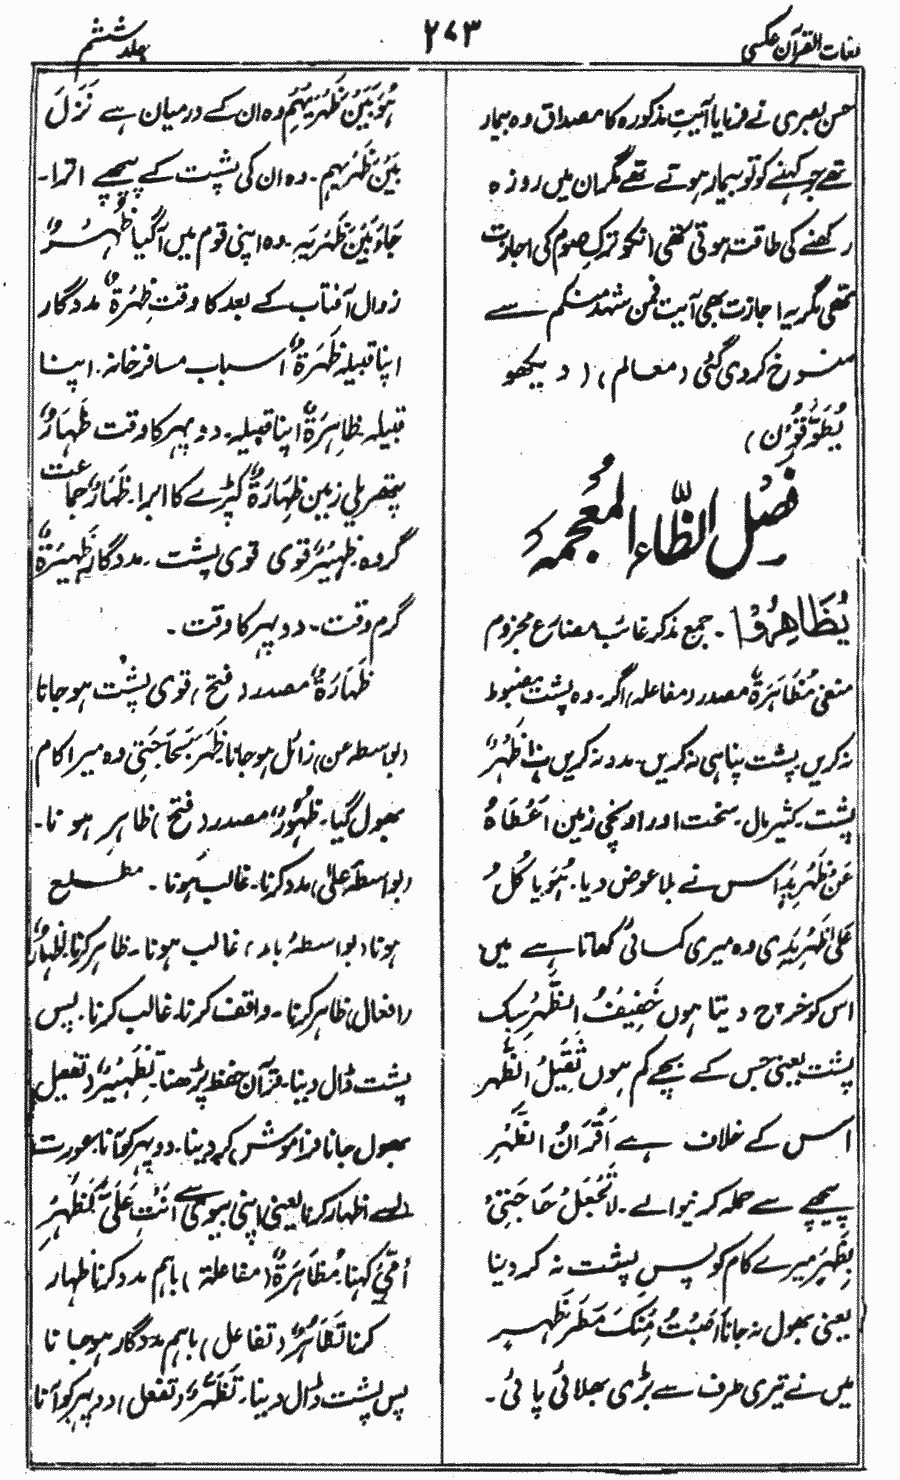 لغات القرآن عکسی
۲۷۳
جلد ششم
حسن بصری نے فرمایا آیت مذکورہ کا مصداق وہ بیمار
تھے جو کہنے کو تو بیمار ہوتے تھے مگر ان میں روزہ
رکھنے کی طاقت ہوتی تھی انکو ترکِ صوم کی اجازت
تھی مگر یہ اجازت بھی آیت فمن شہد منکم سے
منسوخ کردی گئی (معالم) (دیکھو
یُطَوَّقُونَ)
فصل الظاء المعجمہ
یُظَاهِرُوْا۔ جمع مذکر غائب مضارع مجزوم
منفی مُظَاهَرَةٌ مصدر (مفاعلہ) اگر۔ وہ پشت مضبوط
نہ کریں۔ پشت پناہی نہ کریں۔ مدد نہ کریں ظَهْرٌ
پشت۔ کثیر مال۔ سخت اور اونچی زمین اَعْطَاهُ
عَنْ ظَهْرِ یَدٍ اس نے بلا عوض دیا۔ هُوَ یَاکُلُ
عَلٰی ظَهْرِ یَدِی وہ میری کمائی کھاتا ہے میں
اس کو خرچ دیتا ہوں خَفِیْفُ الظَّهْرِ سبک
پشت یعنی جس کے بچے کم ہوں ثَقِیْلُ الظَّهْرِ
اس کے خلاف ہے اَقْرَانُ الظَّهْرِ
پیچھے سے حملہ کرنیوالے۔ لَا تَجْعَلْ حَاجَتِیْ
بِظَهْرٍ میرے کام کو پس پشت نہ کردینا
یعنی بھول نہ جانا اَصَبْتُ مِنْکَ مَطَرَ ظَهْرٍ
میں نے تیری طرف سے بڑی بھلائی پائی۔
هُوَ بَیْنَ ظَهْرَیْهِمْ وہ ان کے درمیان ہے نَزَلَ
بَیْنَ ظَهْرَیْهِمْ۔ وہ ان کی پشت کے پیچھے اترا۔
جَاءَ بَیْنَ ظَهْرَیْهِ۔ وہ اپنی قوم میں آگیا ظُهْرٌ
زوال آفتاب کے بعد کا وقت ظِهْرَةٌ مددگار
اپنا قبیلہ ظَهَرَةٌ اسباب مسافرخانہ۔ اپنا
قبیلہ۔ ظَاهِرَةٌ اپنا قبیلہ۔ دوپہر کا وقت ظَهَارٌ
پتھریلی زمین ظِهَارَةٌ کپڑے کا ابرا۔ ظَهَارٌ جماعت
گروہ۔ ظَهِیْرٌ قوی قوی پشت۔ مددگار ظَهِیْرَةٌ
گرم وقت۔ دوپہر کا وقت۔
ظَهَارَةٌ مصدر (فتح) قوی پشت ہوجانا
(بواسطہ عن) زائل ہوجانا۔ ظَهَرَ بِحَاجَتِیْ وہ میرا کام
بھول گیا۔ ظُهُوْرٌ مصدر (فتح) ظاہر ہونا۔
(بواسطہ علیٰ) مدد کرنا۔ غالب ہونا۔ مطلع
ہونا (بواسطہ باء) غالب ہونا۔ ظاہر کرنا۔ اِظْهَارٌ
(افعال) ظاہر کرنا۔ واقف کرنا۔ غالب کرنا۔ پس
پشت ڈال دینا۔ قرآن حفظ پڑھنا۔ تَظْهِیْرٌ (تفعیل)
بھول جانا فراموش کردینا۔ دوپہر کو آنا۔ عورت
سے اظہار کرنا یعنی اپنی بیوی سے اَنْتِ عَلَیَّ کَظَهْرِ
اُمِّیْ کہنا۔ مُظَاهَرَةٌ (مفاعلۃ) باہم مدد کرنا ظہار
کرنا تَظَاهُرٌ (تفاعل) باہم مددگار ہوجانا
پس پشت ڈال دینا۔ تَظَهُّرٌ (تفعل) دوپہر کو آنا